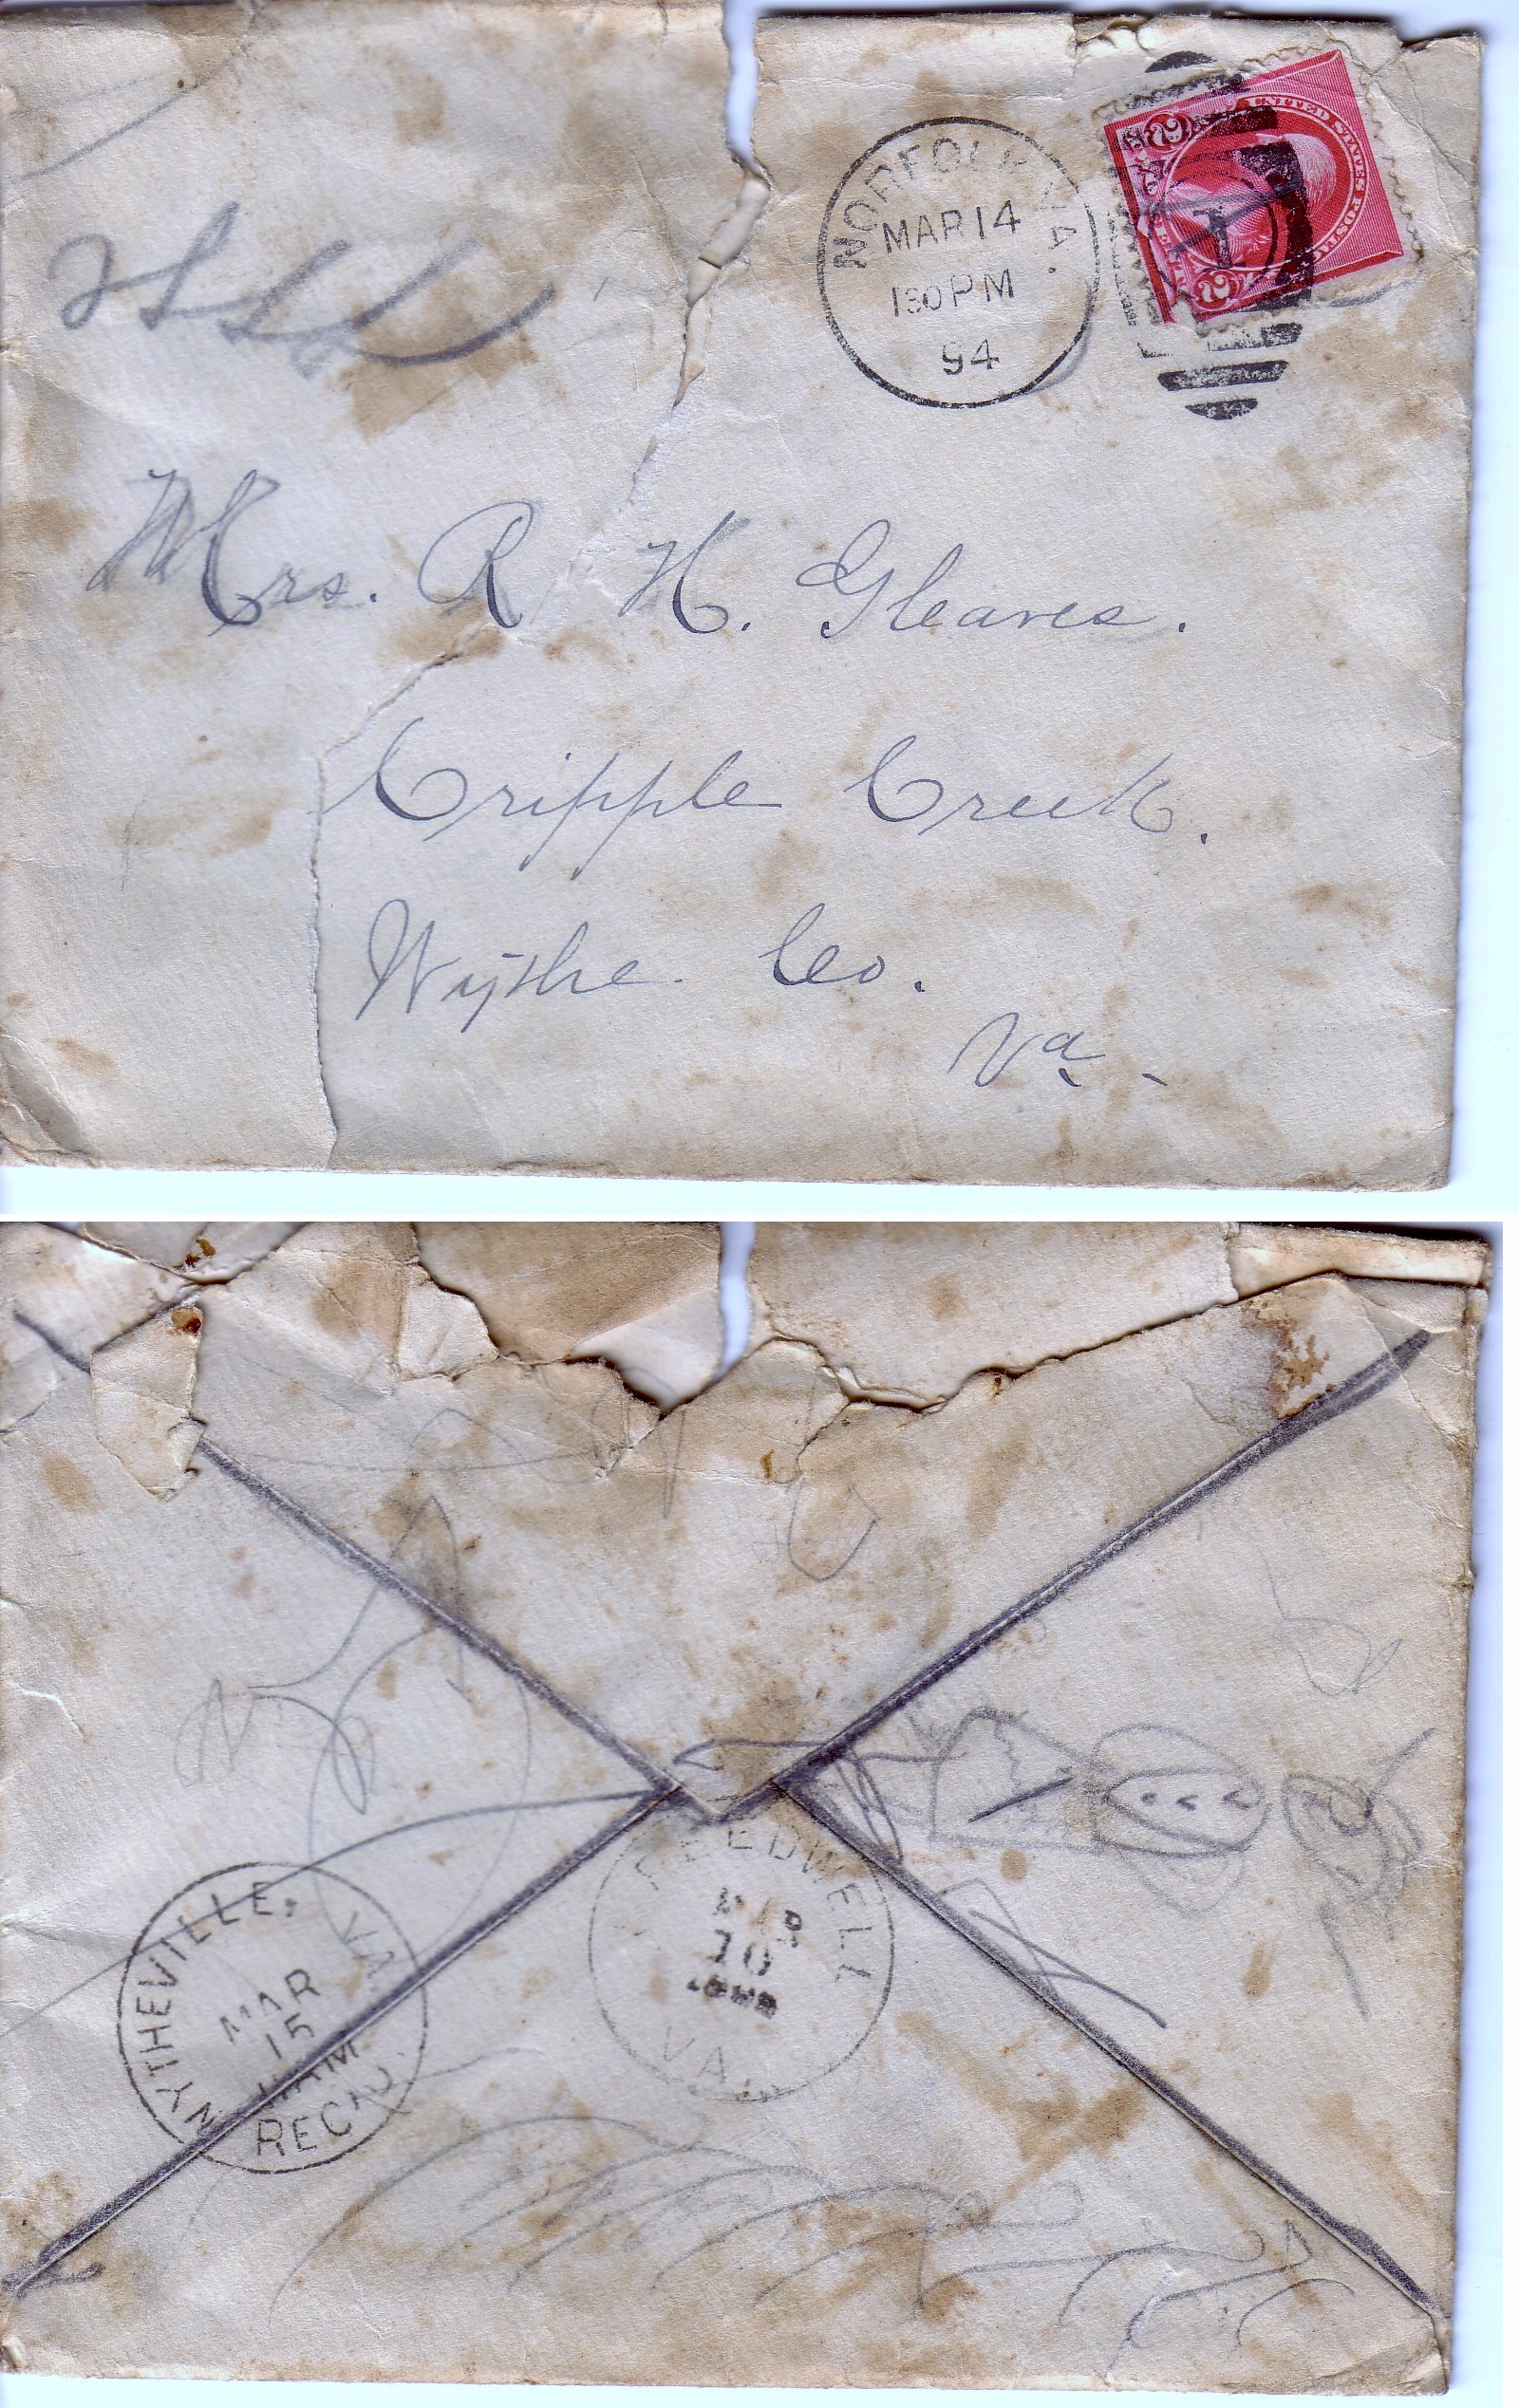 NORFOLK VA.
MAR 14
130 PM
94
UNITED STATES POSTAGE
2 2
1
Mrs. R H. Gleaves.
Cripple Creek.
Wythe Co.
Va.
WYTHEVILLE, VA
MAR
15
AM
REC'D
SPEEDWELL
MAR
VA.